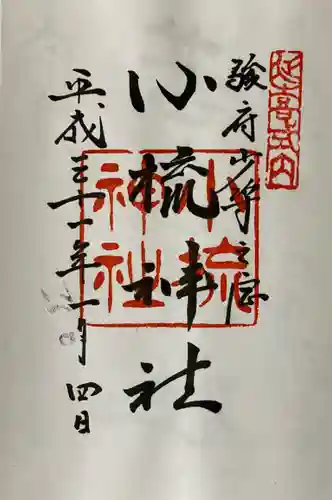 延喜式内
駿府少将之宮
小梳神社
平成三十一年一月四日
小梳神社